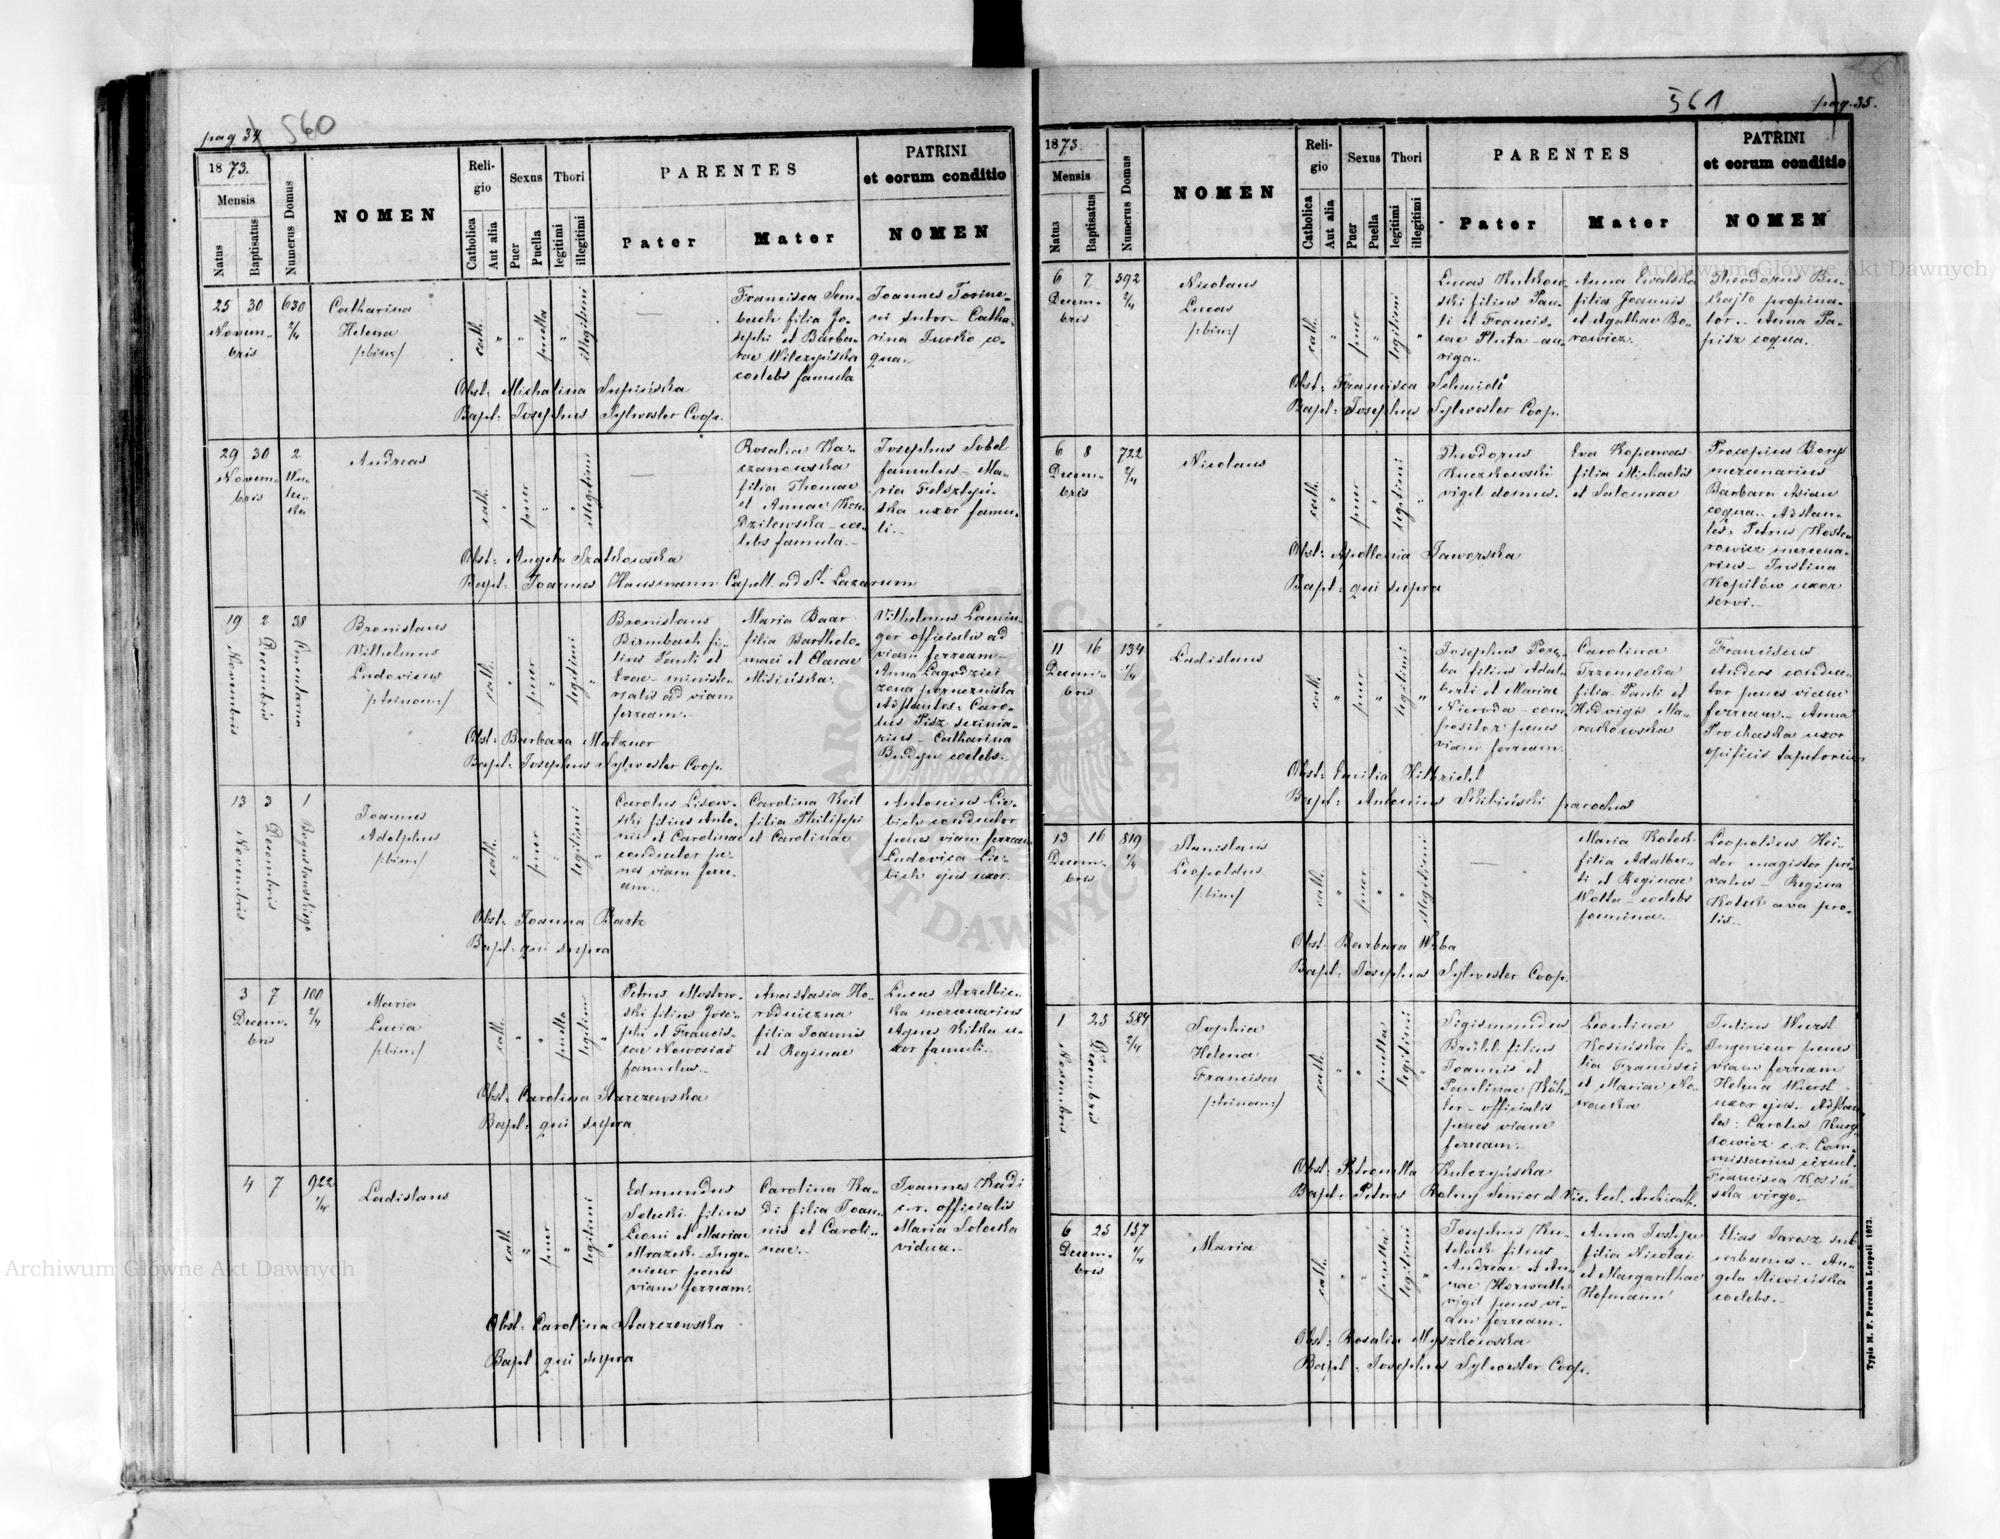 pag 34
560
18 73.
Mensis
Natus
Baptisatus
Numerus Domus
NOMEN
Religio
Catholica
Aut alia
Sexus
Puer
Puella
Thori
legitimi
illegitimi
PARENTES
Pater
Mater
PATRINI
et eorum conditio
NOMEN
25 30 630 2/4
Novembris
Catharina
Helena
/:bin:/
cath. " " puella " illegitimi
Francisca
filia Jo-
sephi et Barba-
rae Wilczyńska
coelebs famula
Joannes
sutor - Catha-
rina Turko co-
qua.
Obst: Michalina Supińska
Bapt: Josephus Sylwester Coop.
29 30 2
Novem-
bris
Andreas
cath. " puer " " illegitimi
Rosalia Ka-
czanowska
filia Thomae
et Annae
coe-
lebs famula.
Josephus Sobel
famulus - Ma-
ria Felsztyń-
ska uxor famu-
li.
Obst: Angela Szatkowska
Bapt: Joannes Hausmann Capell. ad St. Lazarum
19 2 38
Novembris
Decembris
Bronislaus
Vilhelmus
Ludovicus
/:trinom:/
cath. " puer " legitimi "
Bronislaus
Birnbach fi-
lius Pauli et
Evae - ministe-
rialis ad viam
ferream.
Maria Baar
filia Bartholo-
maei et Clarae
Misińska.
Vilhelmus Lamin-
ger officialis ad
viam ferream -
Anna Lagodzici
Adstantes: Caro-
lus Pisz
- Catharina
Budyn coelebs.
Obst: Barbara Matzner
Bapt: Josephus Sylwester Coop.
13 3 1
Novembris
Decembris
Bogusławskiego
Joannes
Adolphus
/:bin:/
cath. " puer " legitimi "
Carolus Lisow-
ski filius Anto-
nii et Carolinae
conductor pe-
nes viam ferre-
am.
Carolina Keil
filia Philippi
et Carolinae
Antonius Lie-
bich conductor
penes viam ferream
Ludovica Lie-
bich ejus uxor.
Obst: Joanna Bartz
Bapt: qui supra
3 7 100 2/4
Decem-
bris
Maria
Lucia
/:bin:/
cath. " " puella legitimi "
Petrus Mostow-
ski filius Jose-
phi et Francis-
cae Nowosiad
famulus.
Anastasia Ho-
rodniczna
filia Joannis
et Reginae
Lucas Strzelbic-
ka mercenarius
Agnes Kitka u-
xor famuli.
Obst: Carolina Starzewska
Bapt: qui supra
4 7 922 1/4
Ladislaus
cath. " puer " legitimi "
Edmundus
Solecki filius
Leoni et Mariae
Mrazek - Inge-
nieur penes
viam ferream.
Carolina Ka-
di filia Joan-
nis et Caroli-
nae.
Joannes Kadi
c.r. officialis
Maria Solecka
vidua.
Obst: Carolina Starzewska
Bapt: qui supra
561
pag. 35.
18 73.
Mensis
Natus
Baptisatus
Numerus Domus
NOMEN
Religio
Catholica
Aut alia
Sexus
Puer
Puella
Thori
legitimi
illegitimi
PARENTES
Pater
Mater
PATRINI
et eorum conditio
NOMEN
6 7 592 2/4
Decem-
bris
Nicolaus
Lucas
/:bin:/
cath. " puer " legitimi "
Lucas Kutkow-
ski filius Pau-
li et Francis-
cae Pluta - au-
riga.
Anna
filia Joannis
et Agathae Bo-
rowicz.
Theodorus Bu-
propina-
tor. - Anna Pa-
pisz coqua.
Obst: Francisca Schmidt
Bapt: Josephus Sylwester Coop.
6 8 722 2/4
Decem-
bris
Nicolaus
cath. " puer " legitimi "
Theodorus
Kuczkowski
vigil domus.
Eva Koporcas
filia Michaelis
et Salomeae
Procopius Borys
mercenarius
Barbara Asian
coqua. Adstan-
tes: Petrus Koste-
rowicz mercena-
rius - Justina
Kopitów uxor
servi.
Obst: Apollonia Jaworska
Bapt: qui supra
11 16 134 1/4
Decem-
bris
Ladislaus
cath. " puer " legitimi "
Josephus Porem-
ba filius Adal-
berti et Mariae
Nieroda - com-
positor penes
viam ferream.
Carolina
Trzemecka
filia Pauli et
Hedvigis Ma-
rakowska
Franciscus
Anders conduc-
tor penes viam
ferream. - Anna
Prochaska uxor
opificis
Obst: Emilia Hilbricht
Bapt: Antonius Skibiński parochus
13 16 819 2/4
Decem-
bris
Stanislaus
Leopoldus
/:bin:/
cath. " puer " " illegitimi
Maria Kolek
filia Adalber-
ti et Reginae
Wolta - coelebs
femina.
Leopoldus Hei-
der magister pri-
vatus - Regina
Kolek ava pro-
lis.
Obst: Barbara Wiba
Bapt: Josephus Sylwester Coop.
1 25 584 2/4
Novembris
Decembris
Sophia
Helena
Francisca
/:trinom:/
cath. " " puella legitimi "
Sigismundus
Brühl filius
Joannis et
Paulinae Köh-
ler - officialis
penes viam
ferream.
Leontina
Kosińska fi-
lia Francisci
et Mariae No-
wacka
Julius Wurst
Ingenieur penes
viam ferream
Helena Wurst
uxor ejus. Adstan-
tes: Carolus Kurz-
kowicz c.r. Com-
missarius circul.
Francisca Kosiń-
ska virgo.
Obst: Petronella Kulczyńska
Bapt: Petrus Rolny Senior et Vic. Eccl. Archicath.
6 25 157 1/4
Decem-
bris
Maria
cath. " " puella legitimi "
Josephus Ku-
filius
Andreae et An-
nae Horwath
vigil penes vi-
am ferream.
Anna
filia Nicolai
et Margarithae
Hofmann
Elias Jarosz sub-
urbanus. - An-
gela Niwińska
coelebs.
Obst: Rosalia Myszkowska
Bapt: Josephus Sylwester Coop.
Typis M. F. Poremba Leopoli 1873.
Archiwum Główne Akt Dawnych
Archiwum Główne Akt Dawnych
ARCHIWUM GŁÓWNE AKT DAWNYCH